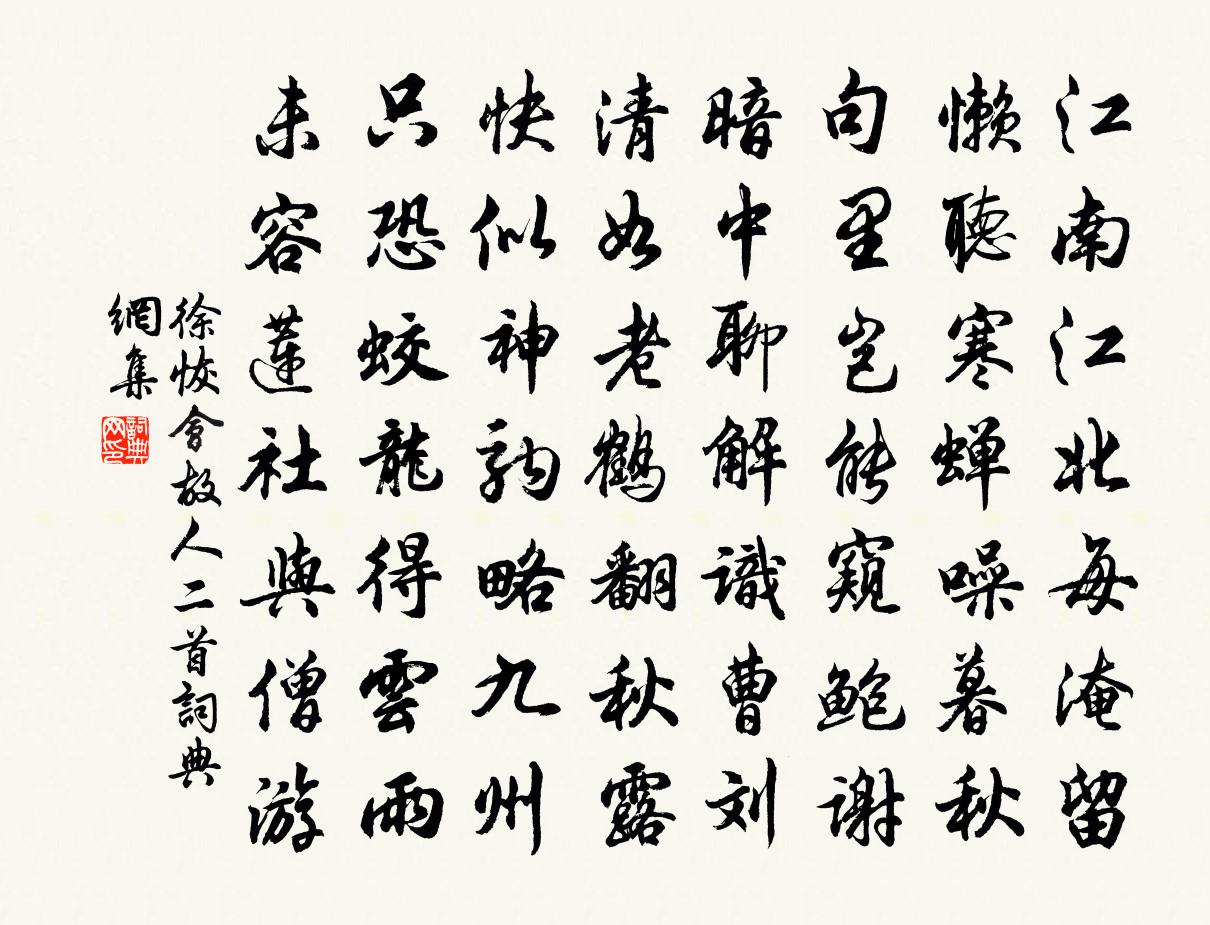 江南江北每淹留
懶聽寒蟬噪暮秋
句里豈能窺鮑謝
暗中聊解識曹刘
清如老鶴翻秋露
快似神駒略九州
只恐蛟龍得雲雨
未容蓮社與僧游
徐恢會故人二首詞典
網集
詞典网印